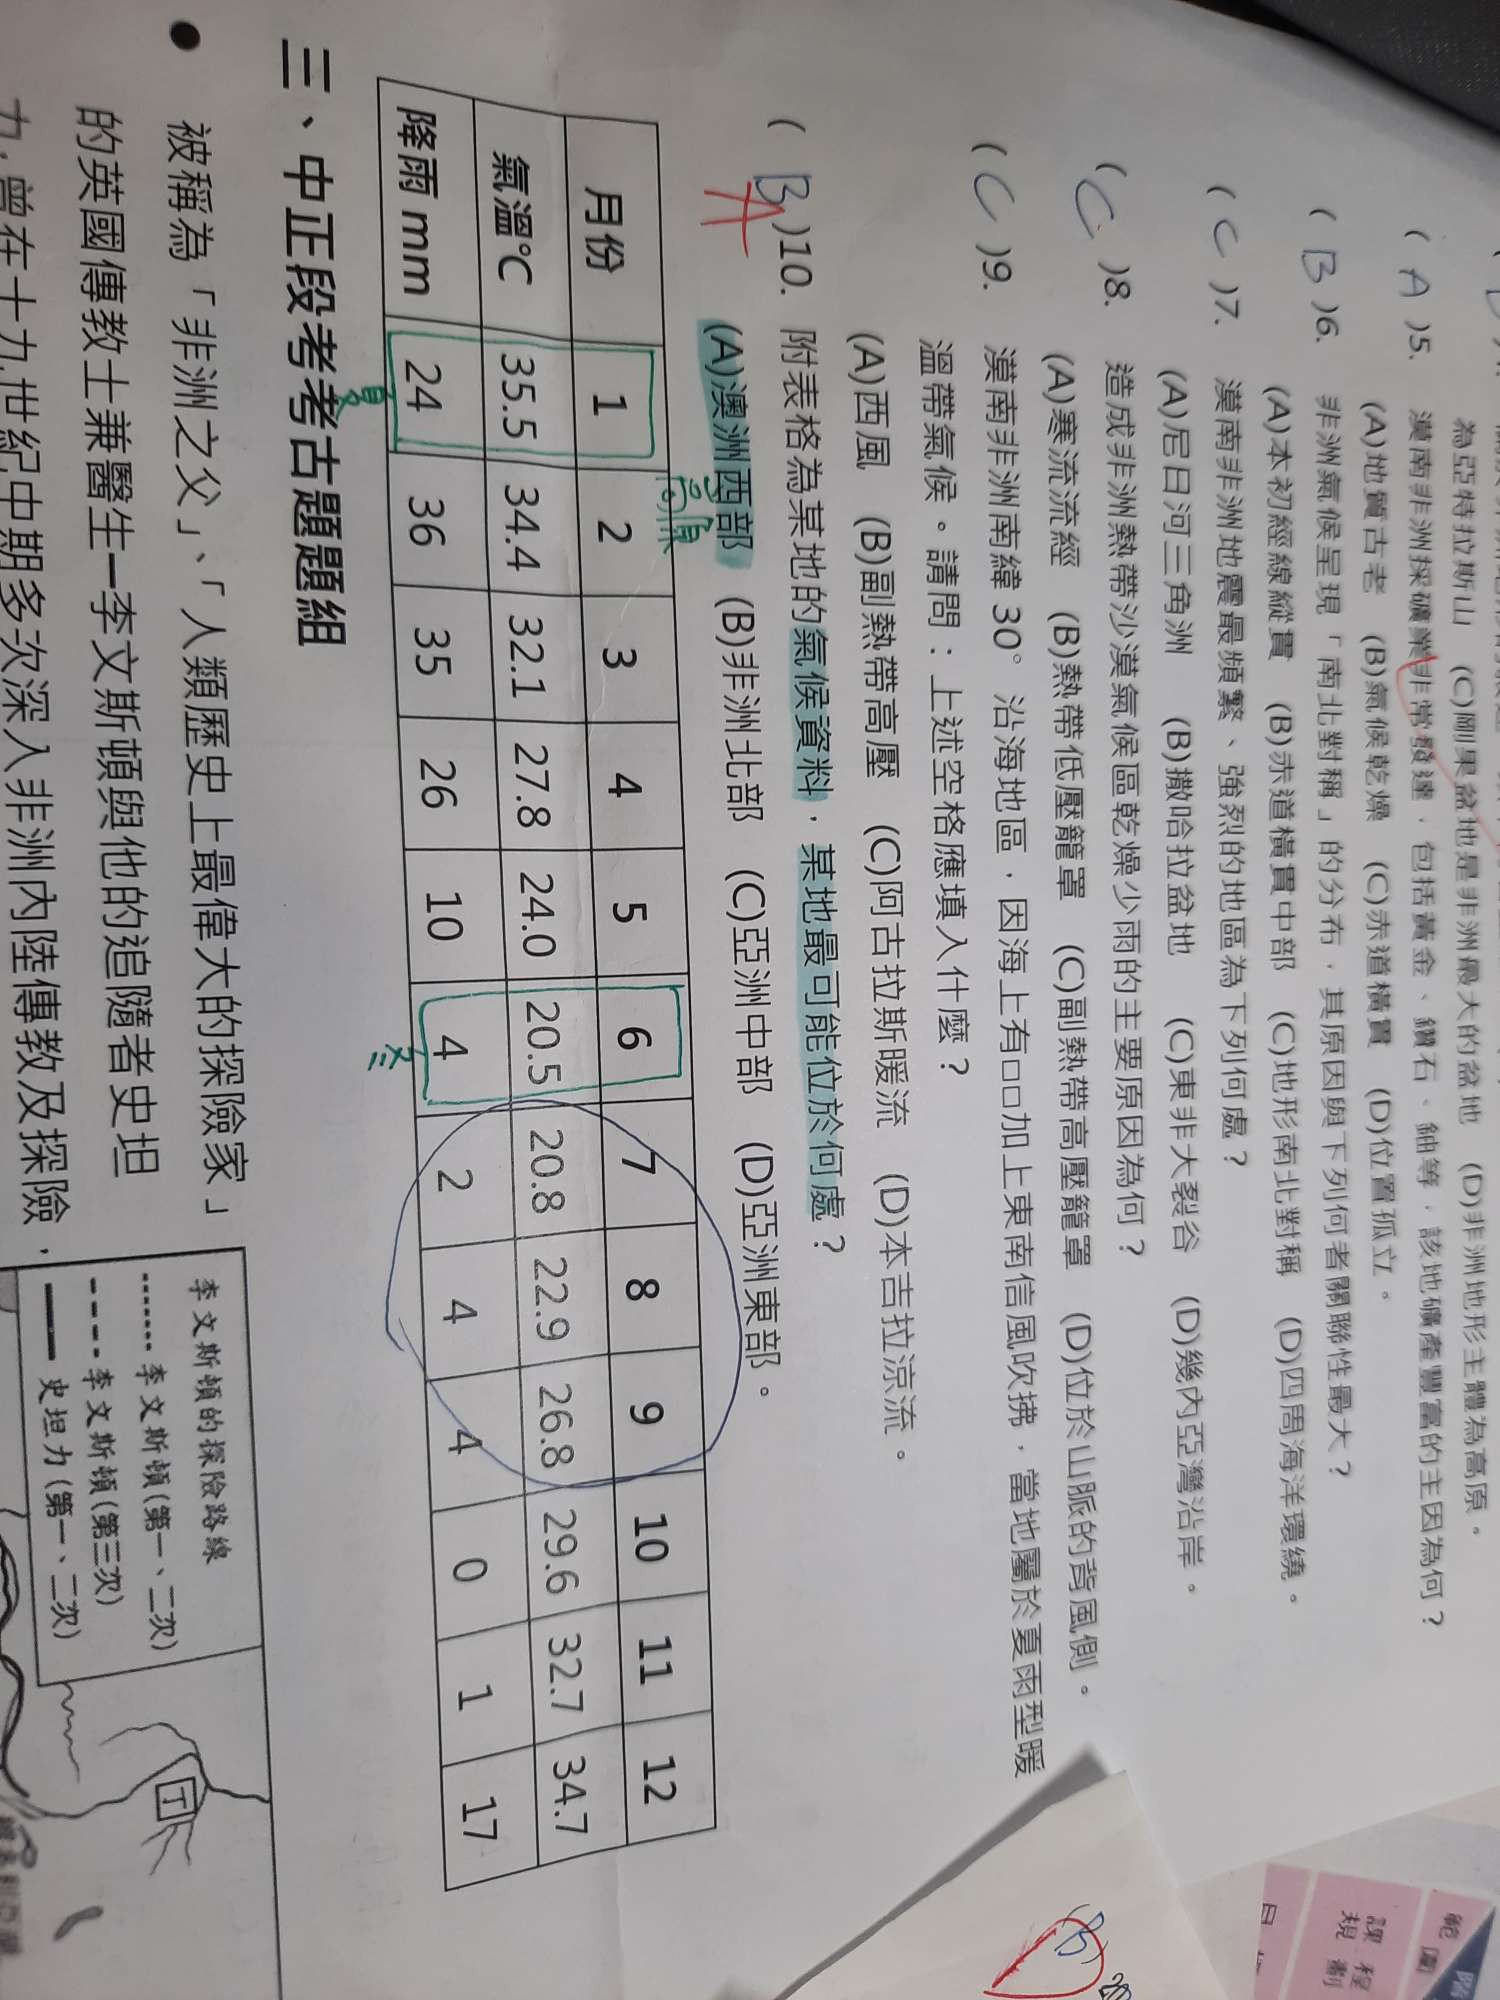 為亞特拉斯山 (C)剛果盆地是非洲最大的盆地 (D)非洲地形主體為高原。
( A )5. 漠南非洲採礦業非常發達，包括黃金、鑽石、鈾等，該地礦產豐富的主因為何？
(A)地質古老 (B)氣候乾燥 (C)赤道橫貫 (D)位置孤立。
( B )6. 非洲氣候呈現「南北對稱」的分布，其原因與下列何者關聯性最大？
(A)本初經線縱貫 (B)赤道橫貫中部 (C)地形南北對稱 (D)四周海洋環繞。
( C )7. 漠南非洲地震最頻繁、強烈的地區為下列何處？
(A)尼日河三角洲 (B)撒哈拉盆地 (C)東非大裂谷 (D)幾內亞灣沿岸。
( C )8. 造成非洲熱帶沙漠氣候區乾燥少雨的主要原因為何？
(A)寒流流經 (B)熱帶低壓籠罩 (C)副熱帶高壓籠罩 (D)位於山脈的背風側。
( C )9. 漠南非洲南緯 30° 沿海地區，因海上有□□加上東南信風吹拂，當地屬於夏雨型暖
溫帶氣候。請問：上述空格應填入什麼？
(A)西風 (B)副熱帶高壓 (C)阿古拉斯暖流 (D)本吉拉涼流。
( B )10. 附表格為某地的氣候資料，某地最可能位於何處？
A
(A)澳洲西部 (B)非洲北部 (C)亞洲中部 (D)亞洲東部。
高原
月份 1 2 3 4 5 6 7 8 9 10 11 12
氣溫℃ 35.5 34.4 32.1 27.8 24.0 20.5 20.8 22.9 26.8 29.6 32.7 34.7
降雨 mm 24 36 35 26 10 4 2 4 4 0 1 17
夏
冬
三、中正段考考古題題組
● 被稱為「非洲之父」、「人類歷史上最偉大的探險家」
的英國傳教士兼醫生—李文斯頓與他的追隨者史坦
力，曾在十九世紀中期多次深入非洲內陸傳教及探險，
李文斯頓的探險路線
李文斯頓(第一、二次)
李文斯頓(第三次)
史坦力(第一、二次)
T
(B)
範圍
課程
規劃